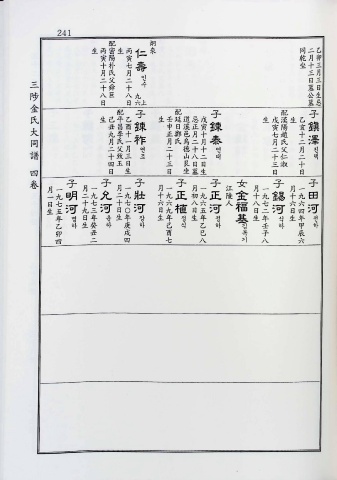 241
三陟金氏大同譜 四卷
乙卯三月三日生忌
二月十三日墓公墓
同乾坐
錫泉
仁壽 인수
九六上
丙寅七月二十八日
生
配密陽朴氏父舜在
丙寅十月二十八日
生
子 鎭澤 진택
乙亥十二月二十日
生
配漢陽趙氏父仁淑
戊寅七月二十三日
生
子 鍊泰 연태
戊寅十月十二日生
忌正月二十八日墓
道溪邑馬橋里
配延日鄭氏
壬申正月二十三日
生
子 鍊祚 연조
乙酉十一月三日生
配平昌李氏父致玉
己丑九月二十四日
生
子 田河 전하
一九六四年甲辰六
月十六日生
子 錫河 석하
一九七二年壬子八
月十八日生
女 金福基 김복기
江陵人
子 正河 정하
一九六五年乙巳八
月初八日生
子 正植 정식
一九六九年己酉七
月二十二日生
子 壯河 장하
一九七〇年庚戌四
月二十日生
子 允河 윤하
一九七三年癸丑二
月二十九日生
子 明河 명하
一九七五年乙卯四
月一日生